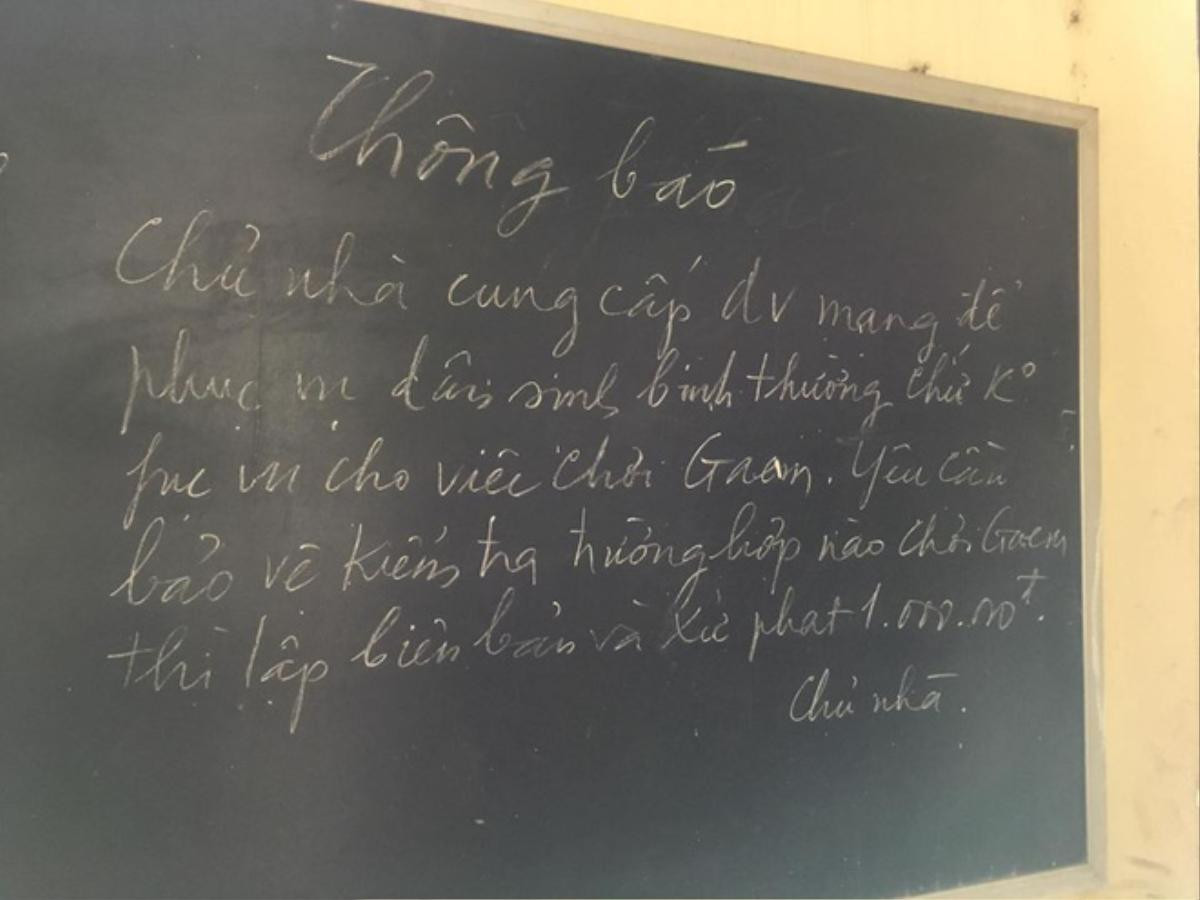 Thông báo
Chủ nhà cung cấp dv mạng để
phục vụ dân sinh bình thường chứ Kº
pục vụ cho việc chơi Gaem. Yêu cầu
bảo vệ kiểm tra trường hợp nào chơi Gaem
thì lập biên bản và xử phạt 1.000.000đ.
Chủ nhà.